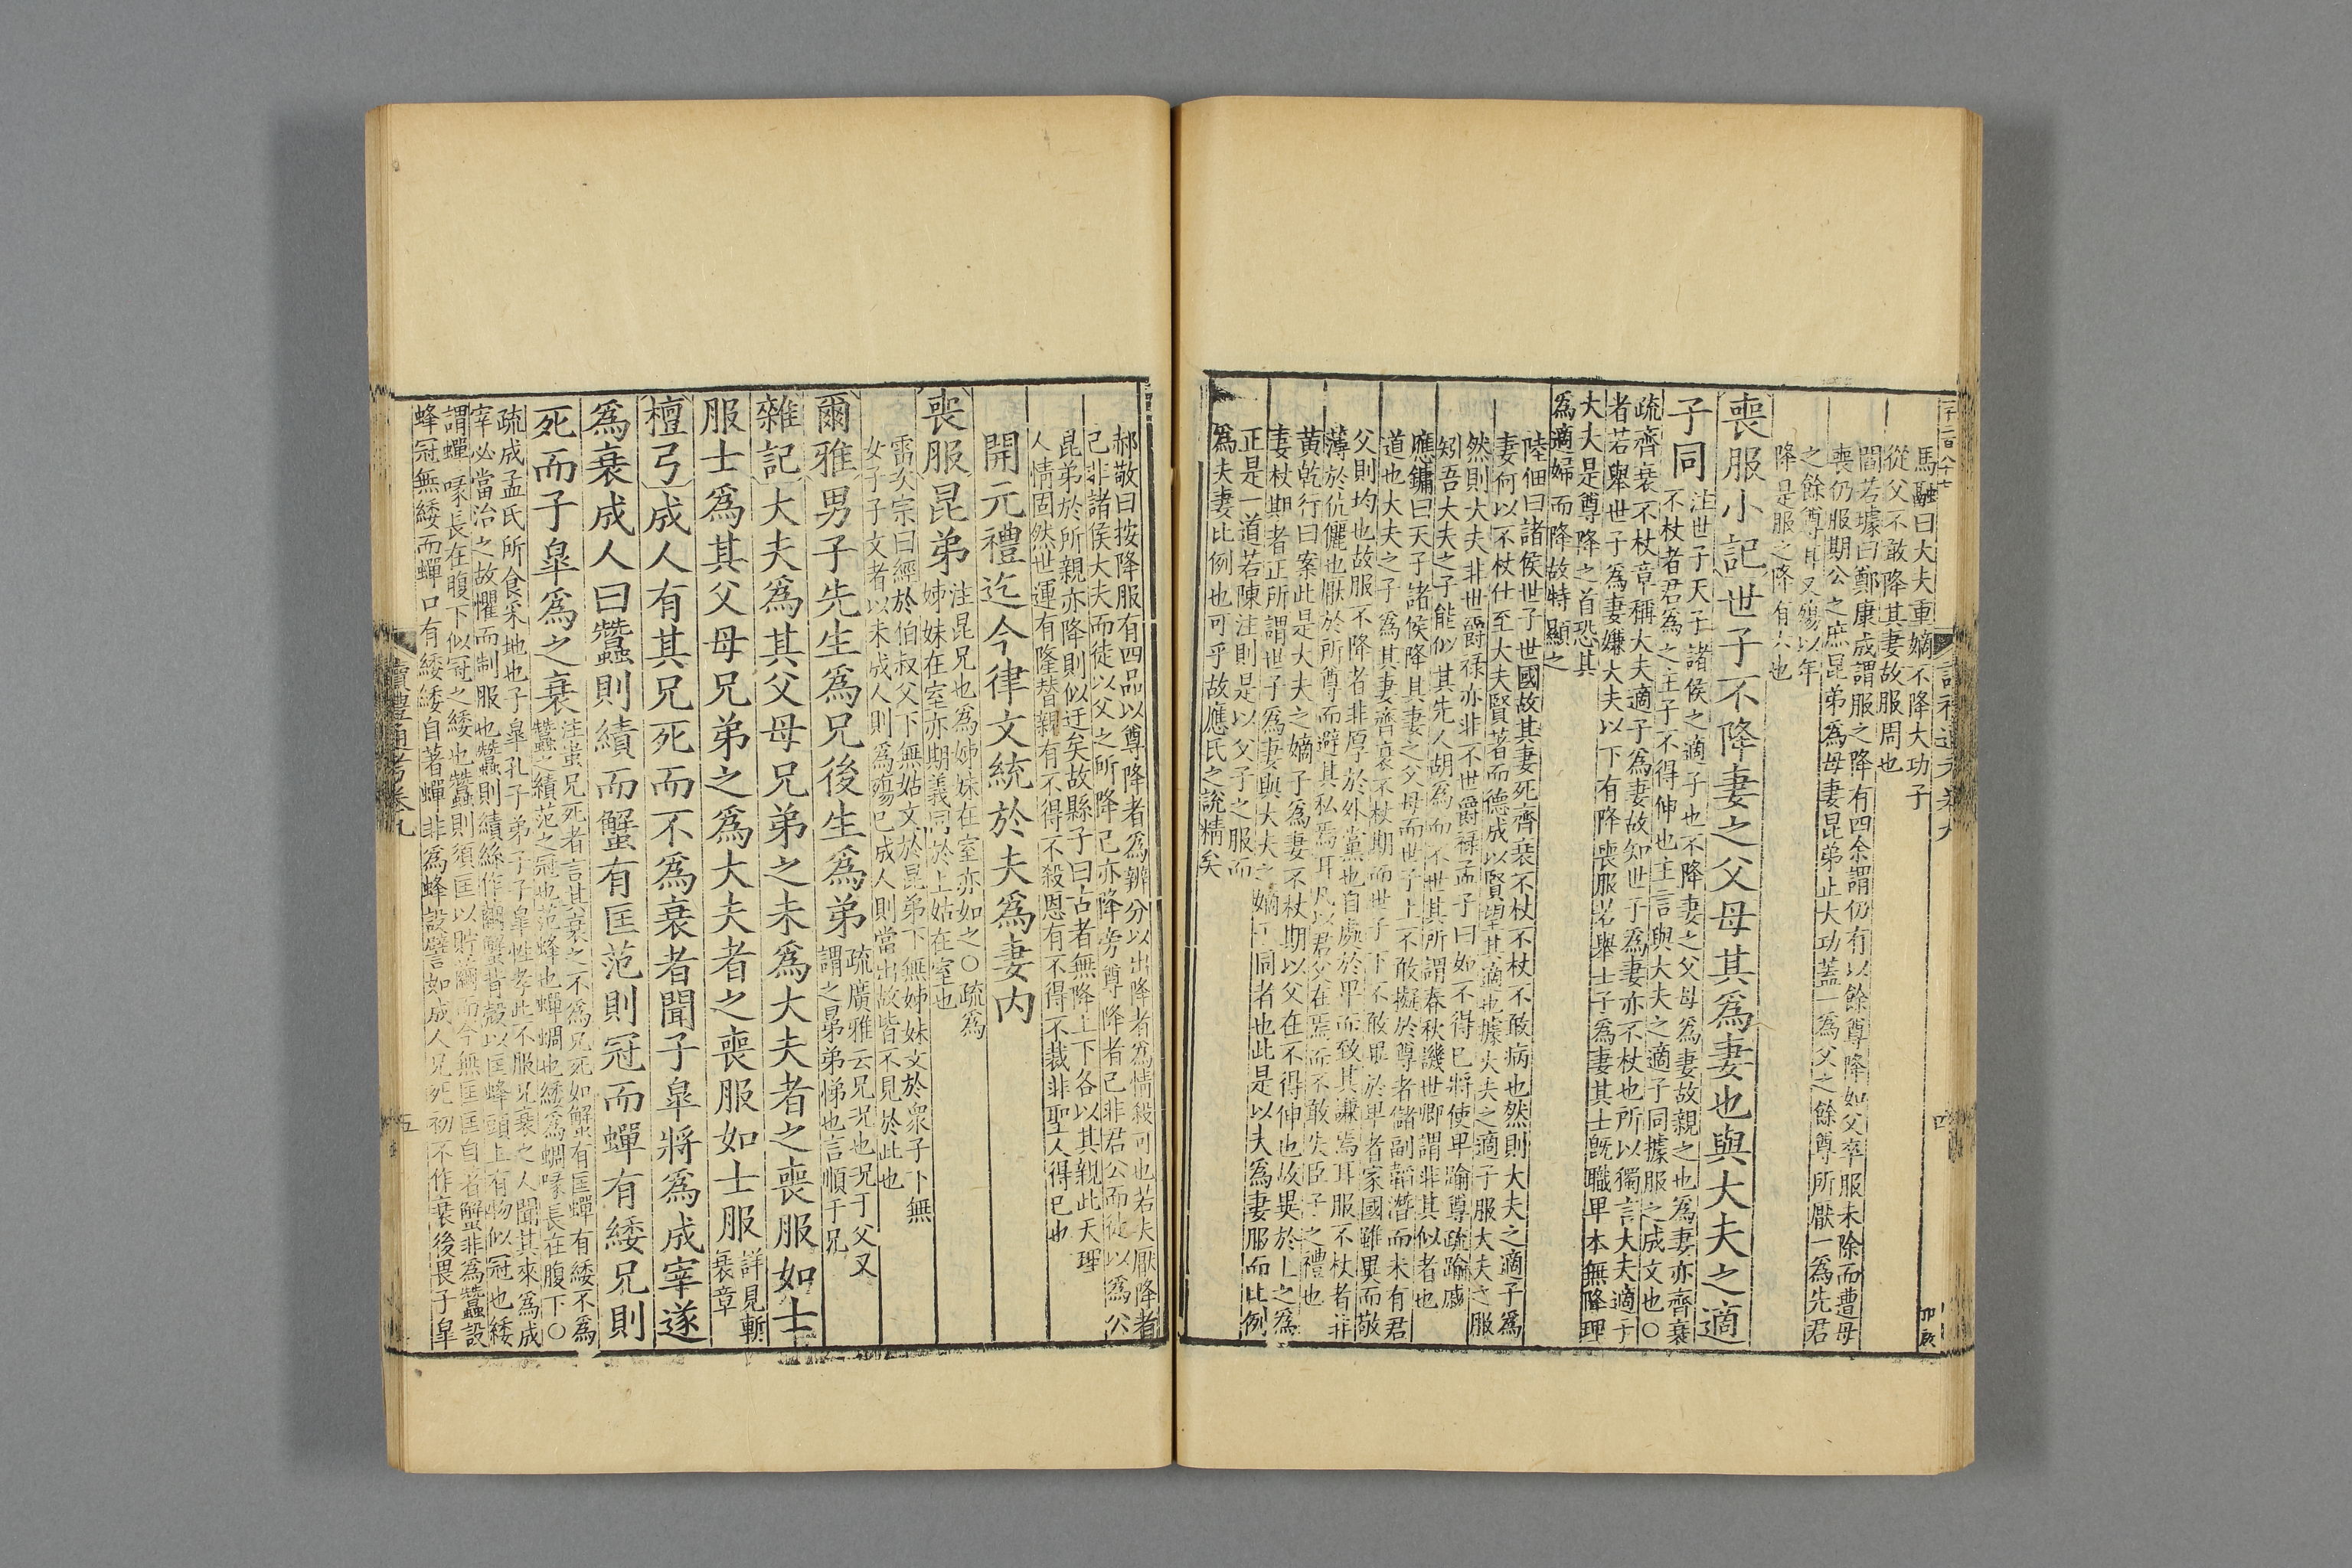 一千二百八十七
馬融曰大夫重嫡不降大功子
從父不敢降其妻故服周也
閻若璩曰鄭康成謂服之降有四余謂仍有以餘尊降如父卒服未除而遭母
喪仍服期公之庶昆弟爲母妻昆弟止大功蓋一爲父之餘尊所厭一爲先君
之餘尊耳又殤以年
降是服之降有六也
喪服小記世子不降妻之父母其爲妻也與大夫之適
子同
注世子天子諸侯之適子也不降妻之父母爲妻故親之也爲妻亦齊衰
不杖者君爲之主子不得伸也主言與大夫之適子同據服之成文也○
疏齊衰不杖章稱大夫適子爲妻故知世子爲妻亦不杖也所以獨言大夫適子
者若舉世子爲妻嫌大夫以下有降喪服若舉士子爲妻其士旣職卑本無降理
大夫是尊降之首恐其
爲適婦而降故特顯之
陸佃曰諸侯世子世國故其妻死齊衰不杖不杖不敢病也然則大夫之適子爲
妻何以不杖仕至大夫賢著而德成以賢望其適也據大夫之適子服大夫之服
然則大夫非世爵祿亦非不世爵祿孟子曰如不得已將使卑踰尊疏踰戚
矧吾大夫之子能似其先人胡爲而不世其所謂春秋譏世卿謂非其似者也
應鏞曰天子諸侯降其妻之父母而世子上不敢擬於尊者儲副韜潛而未有君
道也大夫之子爲其妻齊衰不杖期而世子下不敢卑於卑者家國雖異而敬
父則均也故服不降者非厚於外黨也自處於卑而致其謙焉耳服不杖者非
薄於伉儷也厭於所尊而避其私焉耳凡以君父在焉而不敢失臣子之禮也
黄乾行曰案此是大夫之嫡子爲妻不杖期以父在不得伸也故異於上之爲
妻杖期者正所謂世子爲妻與大夫之嫡子同者也此是以夫爲妻服而比例
正是一道若陳注則是以父子之服而
爲夫妻比例也可乎故應氏之說精矣
郝敬曰按降服有四品以尊降者爲辨分以出降者爲情殺可也若夫厭降者
己非諸侯大夫而徒以父之所降己亦降旁尊降者己非君公而徒以爲公
昆弟於所親亦降則似迂矣故縣子曰古者無降上下各以其親此天理
人情固然世運有隆替親有不得不殺恩有不得不裁非聖人得已也
開元禮迄今律文統於夫爲妻内
喪服昆弟
注昆兄也爲姊妹在室亦如之○疏爲
姊妹在室亦期義同於上姑在室也
雷次宗曰經於伯叔父下無姑文於昆弟下無姊妹文於衆子下無
女子子文者以未成人則爲殤已成人則當出故皆不見於此也
爾雅男子先生爲兄後生爲弟
疏廣雅云兄況也況于父又
謂之晜弟弟悌也言順于兄
雜記大夫爲其父母兄弟之未爲大夫者之喪服如士
服士爲其父母兄弟之爲大夫者之喪服如士服
詳見斬
衰章
檀弓成人有其兄死而不爲衰者聞子皐將爲成宰遂
爲衰成人曰蠶則績而蟹有匡范則冠而蟬有緌兄則
死而子皐爲之衰
注蚩兄死者言其衰之不爲兄死如蟹有匡蟬有緌不爲
蠶之績范之冠也范蜂也蟬蜩也緌爲蜩喙長在腹下○
疏成孟氏所食采地也子皐孔子弟子子皐性孝此不服兄衰之人聞其來爲成
宰必當治之故懼而制服也蠶則績絲作繭蟹背殼以匡蜂頭上有物似冠也緌
謂蟬喙長在腹下似冠之緌也蠶則須匡以貯繭而今無匡匡自著蟹非爲蠶設
蜂冠無緌而蟬口有緌緌自著蟬非爲蜂設譬如成人兄死初不作衰後畏子皐
讀禮通考卷九
五